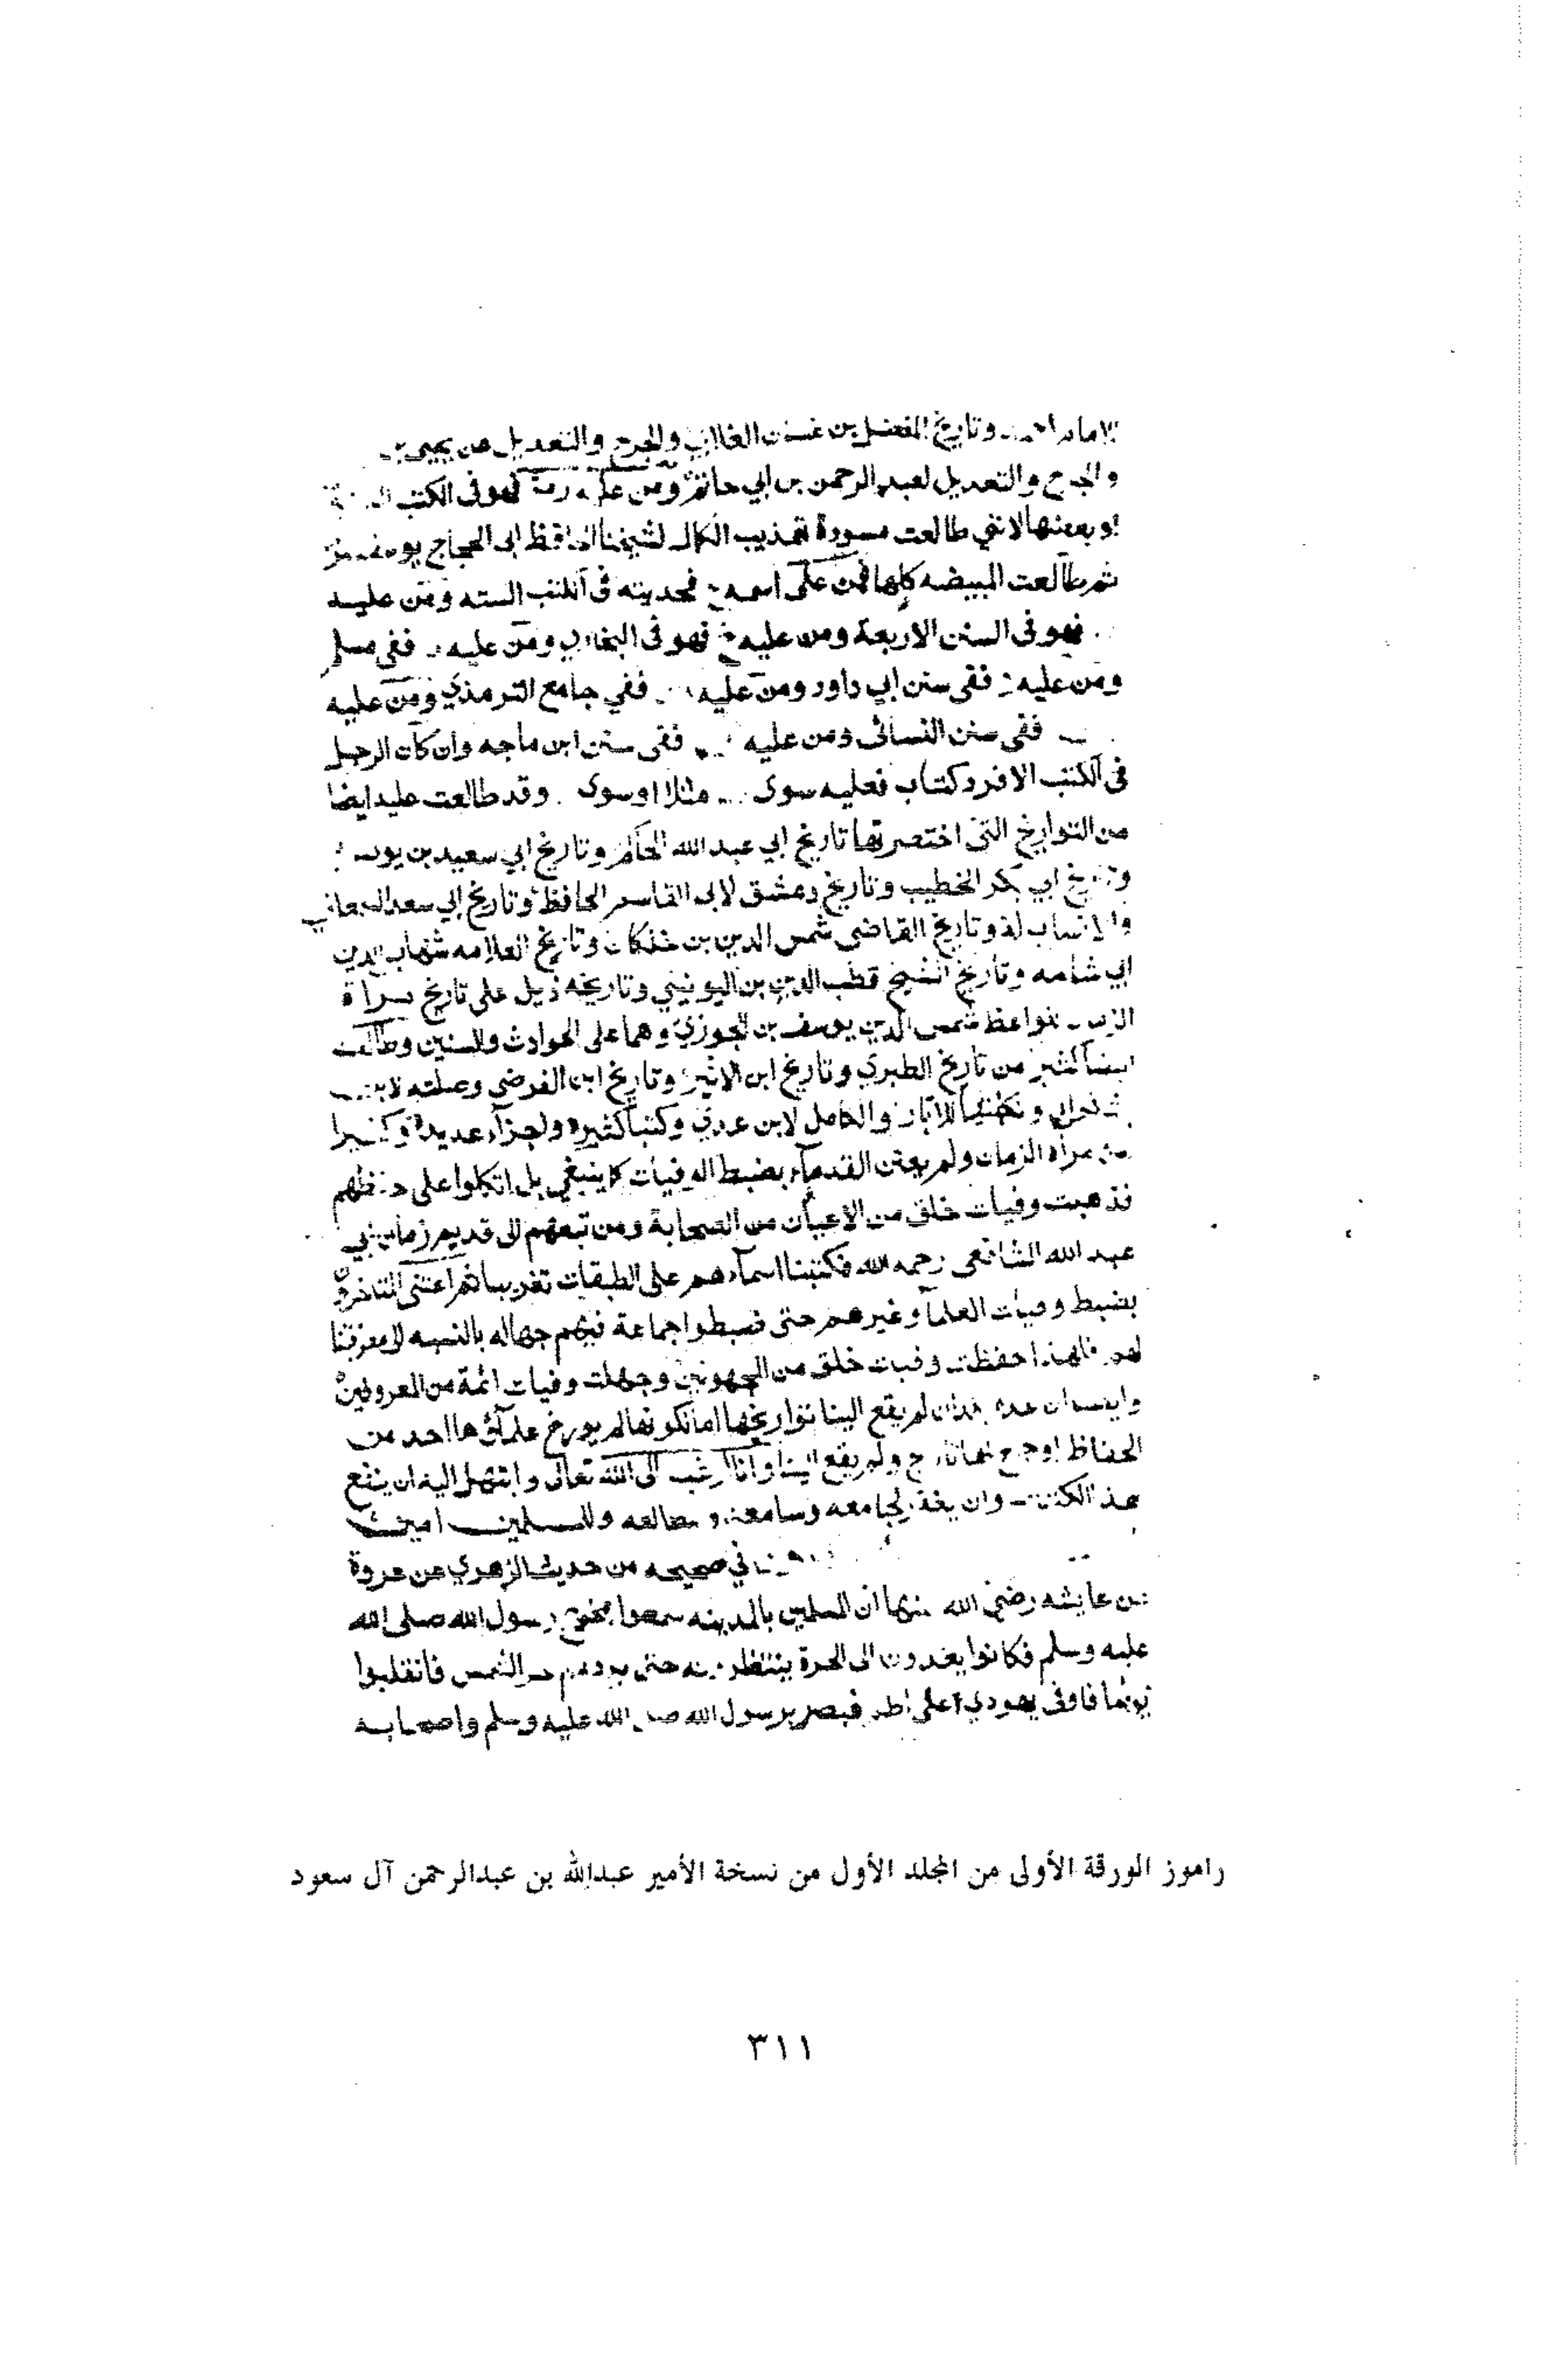 وتاريخ المفضل بن غسان الغلابي والجرح والتعديل عن يحيى بن
والجرح والتعديل لعبد الرحمن بن ابي حاتم ومن عليه فهو في الكتب
او بعضها لانني طالعت مسودة تهذيب الكمال لشيخنا الحافظ ابي الحجاج يوسف
ثم طالعت المبيضه كلها فمن على اسمه فحديثه في الكتب السته ومن عليه
فهو في السنن الاربعة ومن عليه خ فهو في البخاري ومن عليه ففي مسلم
ومن عليه ففي سنن ابي داود ومن عليه ففي جامع الترمذي ومن عليه
ففي سنن النسائي ومن عليه ففي سنن ابن ماجه وان كان الرجل
في الكتب الا فرد كتاب فعليه سوى مثلا او سوى وقد طالعت عليه ايضا
من التواريخ التي اختصرتها تاريخ ابي عبد الله الحاكم وتاريخ ابي سعيد بن يونس
وتاريخ ابي بكر الخطيب وتاريخ دمشق لابي القاسم الحافظ وتاريخ ابي سعد السمعاني
والانساب له وتاريخ القاضي شمس الدين بن خلكان وتاريخ العلامه شهاب الدين
ابي شامه وتاريخ الشيخ قطب الدين بن اليونيني وتاريخه ذيل على تاريخ مرآة
الزمان للواعظ شمس الدين يوسف بن الجوزي وهما على الحوادث والسنين وطالعت
ايضا كثيرا من تاريخ الطبري وتاريخ ابن الاثير وتاريخ ابن الفرضي وصلته لابن
بشكوال وتكملتها للابار والكامل لابن عدي وكتبا كثيرة واجزآء عديدة وكثيرا
من مرآه الزمان ولم يعتن القدمآء بضبط الوفيات كما ينبغي بل اتكلوا على حفظهم
فذهبت وفيات خلق من الاعيان من الصحابة ومن تبعهم الى قديم زمان ابي
عبد الله الشافعي رحمه الله فكتبنا اسمآءهم على الطبقات تقريبا ثم اعتنى المتاخرون
بضبط وفيات العلمآ وغيرهم حتى ضبطوا جماعة فيهم جهاله بالنسبه الى معرفتنا
لهم فلهذا حفظت وفيات خلق من المجهولين وجهلت وفيات ائمة من المعروفين
وايضا فان عدة بلدان لم يقع الينا تواريخها اما لكونها لم يورخ علمآؤها احد من
الحفاظ او جمع لها تاريخ ولم يقع الينا وانا ارغب الى الله تعالى وابتهل اليه ان ينفع
بهذا الكتاب وان يغفر لجامعه وسامعه ومطالعه وللمسلمين امين
في صحيحه من حديث الزهري عن عروة
عن عايشه رضي الله عنها ان المسلمين بالمدينه سمعوا بمخرج رسول الله صلى الله
عليه وسلم فكانوا يغدون الى الحرة ينتظرونه حتى يردهم حر الشمس فانقلبوا
يوما فاوفى يهودي على اطم فبصر برسول الله صلى الله عليه وسلم واصحابه
راموز الورقة الأولى من المجلد الأول من نسخة الأمير عبدالله بن عبدالرحمن آل سعود
٣١١